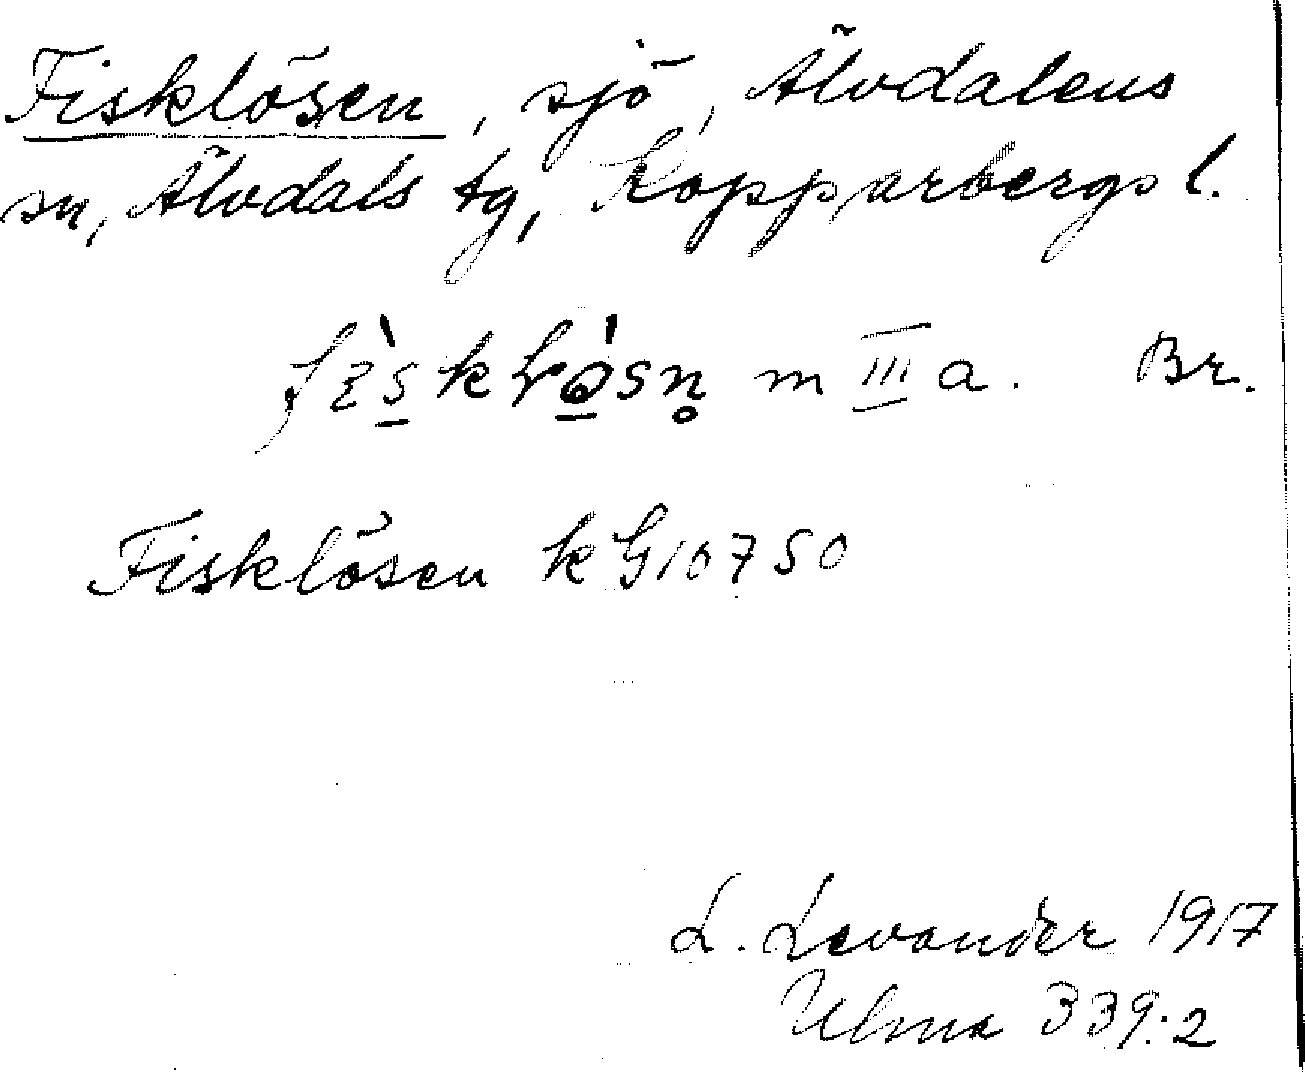 Fisklösen, sjö, Älvdalens
sn, Älvdals tg, Kopparbergs l.
m III a. Br.
Fisklösen k G10750
L. Levander 1917
Ulma 339:2